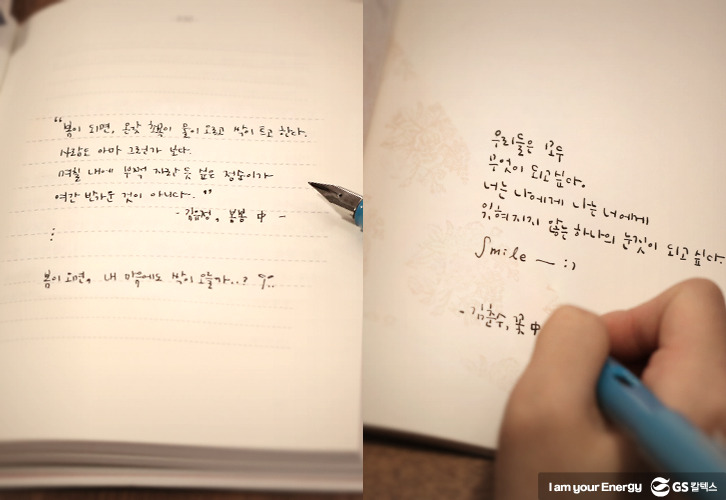 “봄이 되면, 온갖 초목이 물이 오르고 싹이 트고 한다.
사람도 아마 그런가 보다.
며칠 내에 부쩍 자란 듯 싶은 점순이가
여간 반가운 것이 아니다.”
- 김유정, 봄봄 中 -
⋮
봄이 오면, 내 마음에도 싹이 오를까..?
우리들은 모두
무엇이 되고 싶다.
너는 나에게 나는 너에게
잊혀지지 않는 하나의 눈짓이 되고 싶다.
Smile — :)
- 김춘수, 꽃 中
I am your Energy GS칼텍스